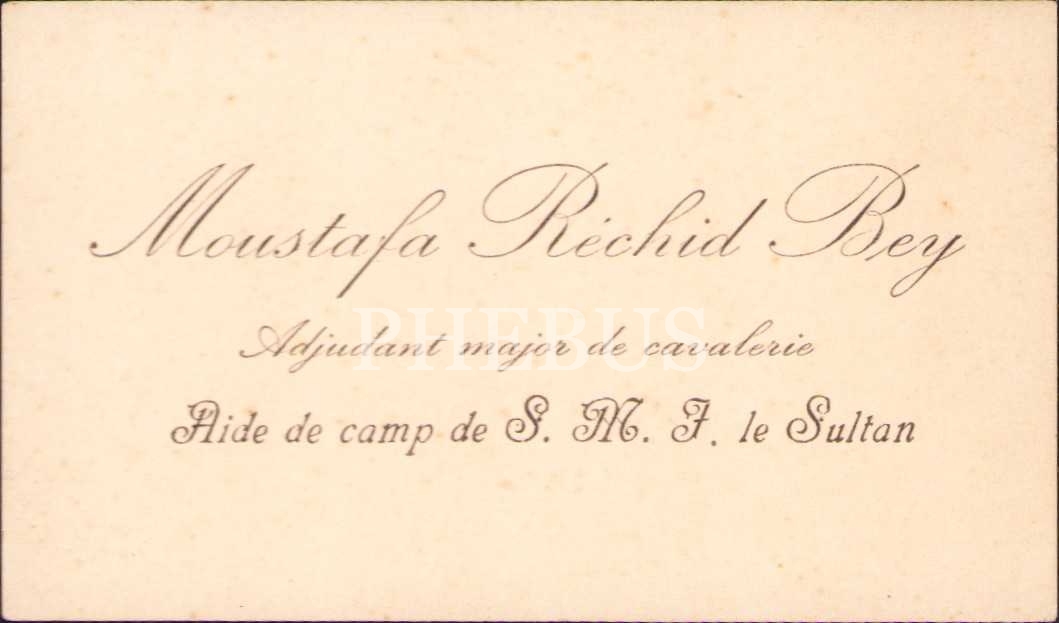 Moustafa Réchid Bey
PHEBUS
Adjudant major de cavalerie
Aide de camp de S. M. I. le Sultan